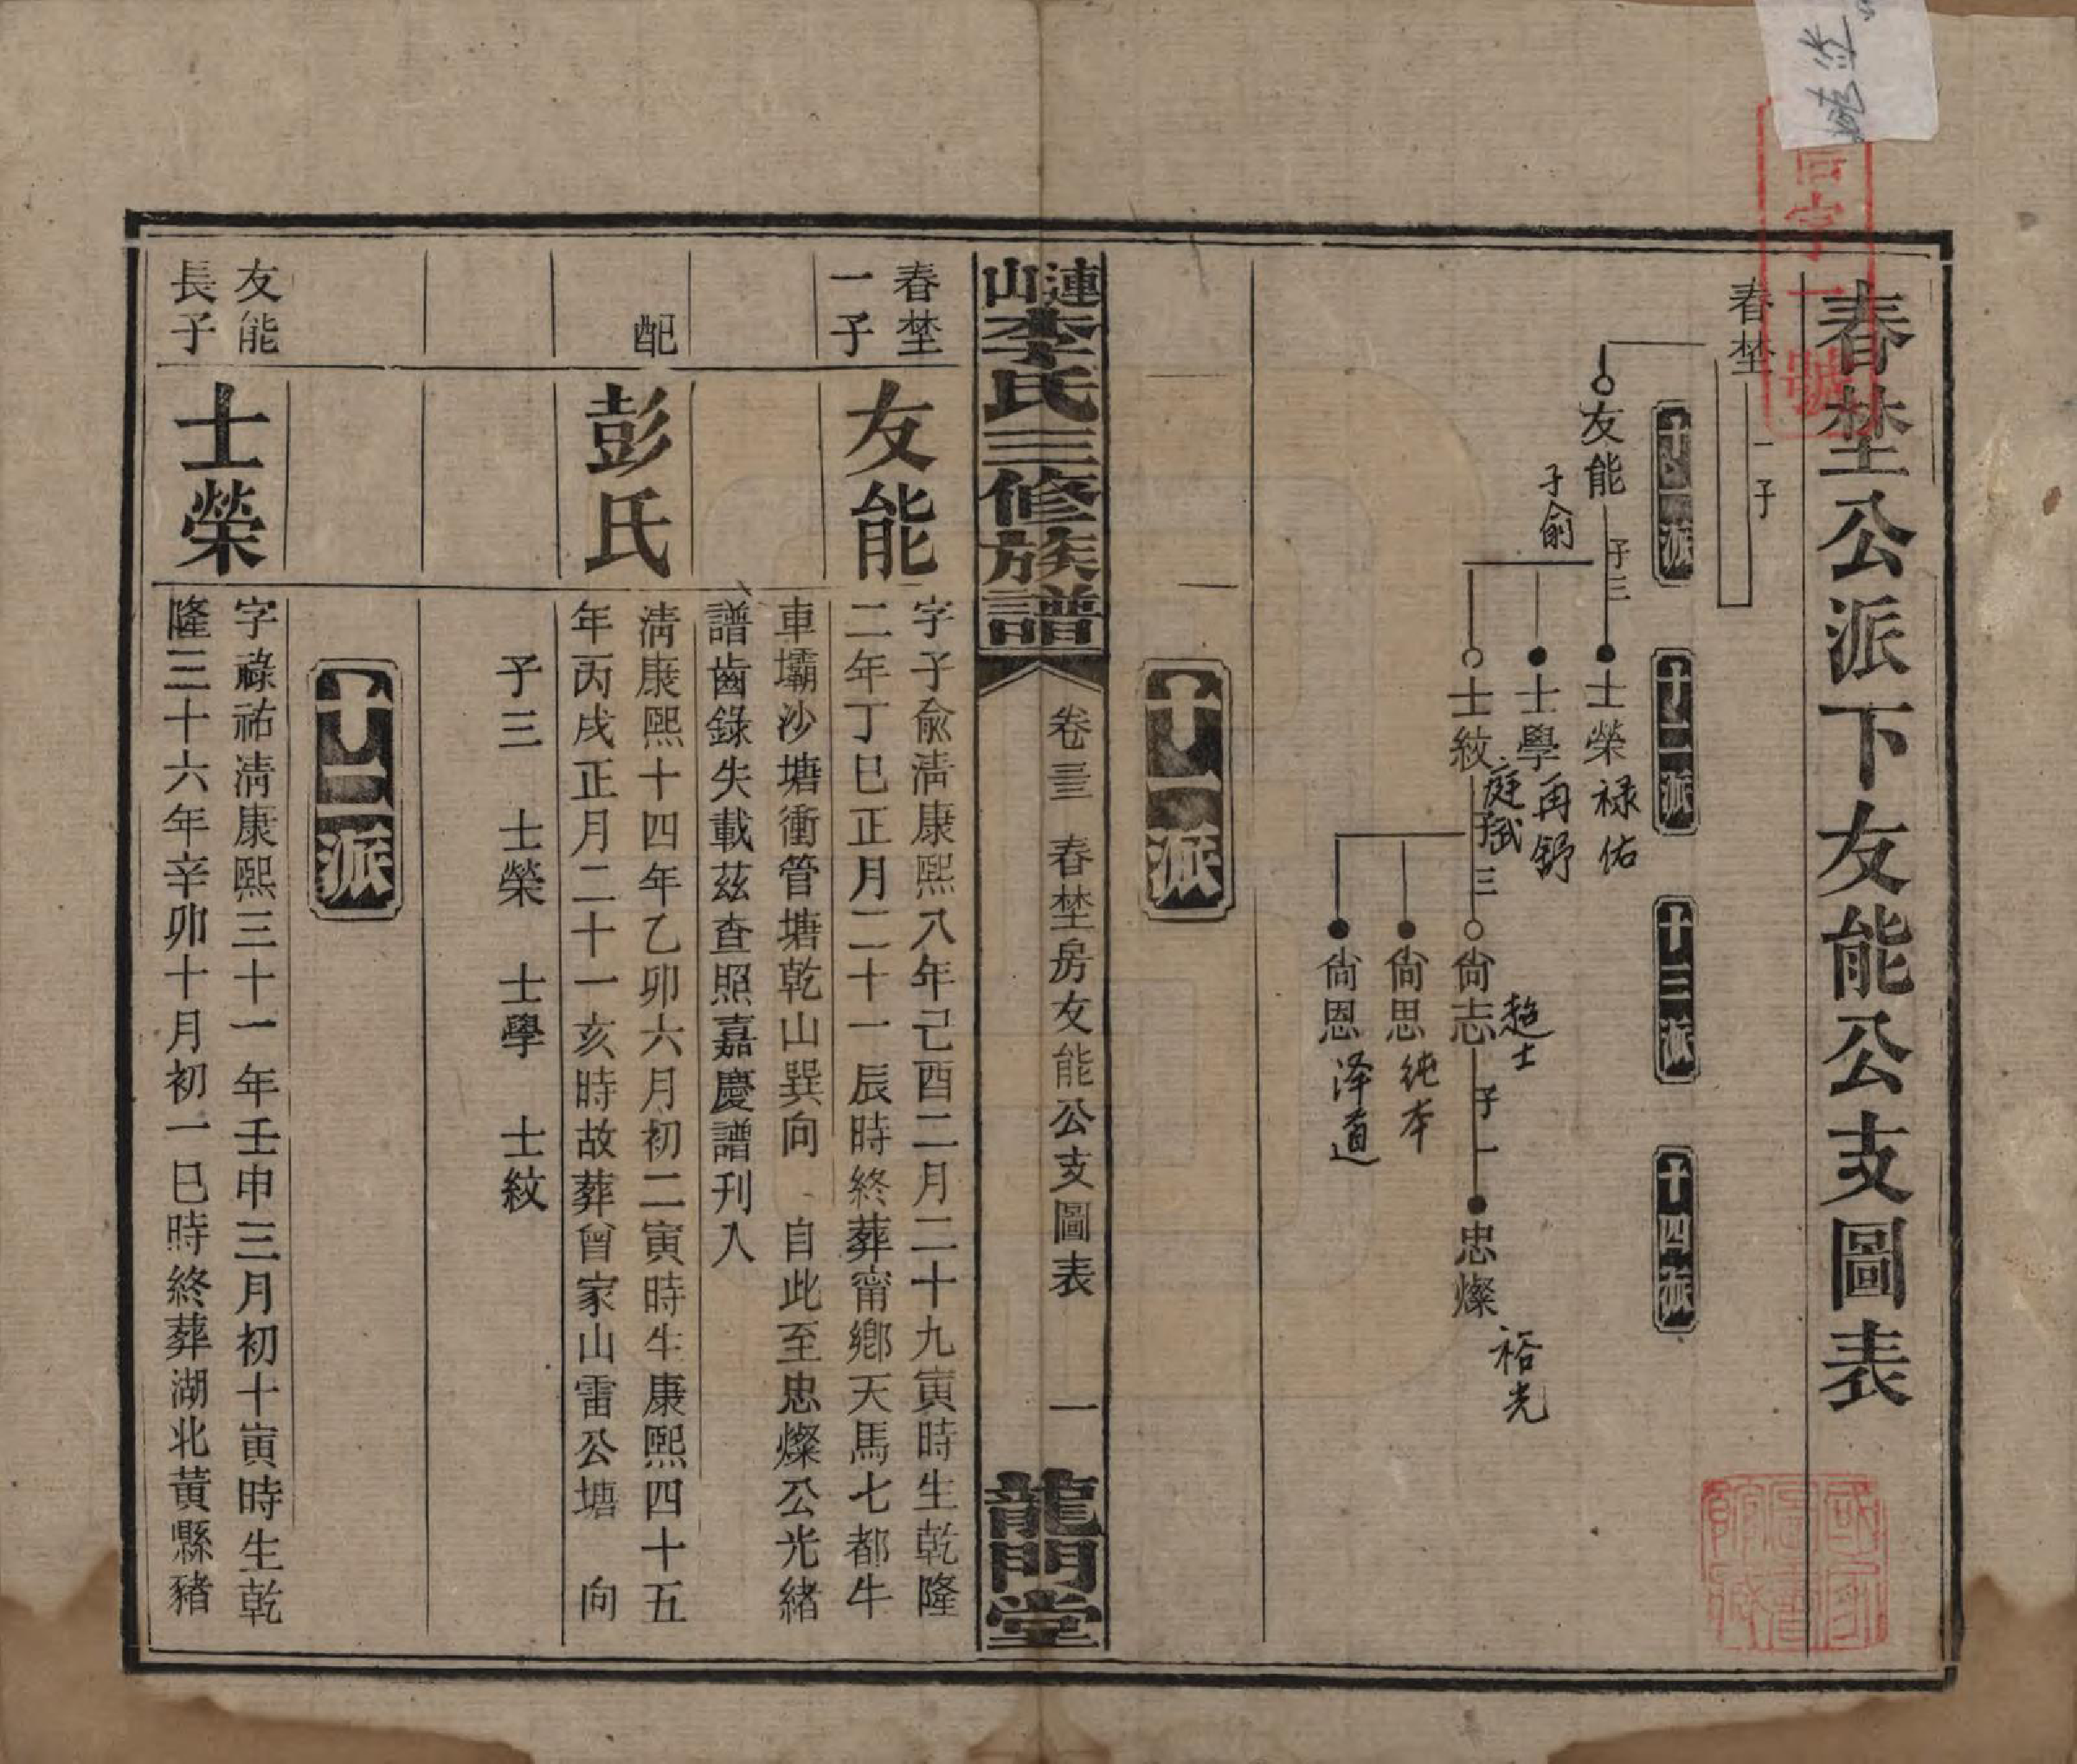 春埜公派下友能公支圖表
春埜
一子
十一派
十二派
十三派
十四派
友能
子俞
子三
士榮
禄佑
士學
再舒
士紋
庭斌
子三
尙志
趋士
子一
尙思
純本
尙恩
泽道
忠燦
裕光
字一號
十一派
漣山李氏三修族譜
卷三 春埜房友能公支圖表 一
龍門堂
春埜
一子
友能
字子兪淸康熙八年己酉二月二十九寅時生乾隆
二年丁巳正月二十一辰時終葬甯鄕天馬七都牛
車壩沙塘衝管塘乾山巽向 自此至忠燦公光緖
譜齒錄失載茲查照嘉慶譜刊入
配
彭氏
淸康熙十四年乙卯六月初二寅時生康熙四十五
年丙戌正月二十一亥時故葬曾家山雷公塘 向
子三 士榮 士學 士紋
十二派
友能
長子
士榮
字祿祐淸康熙三十一年壬申三月初十寅時生乾
隆三十六年辛卯十月初一巳時終葬湖北黃縣豬